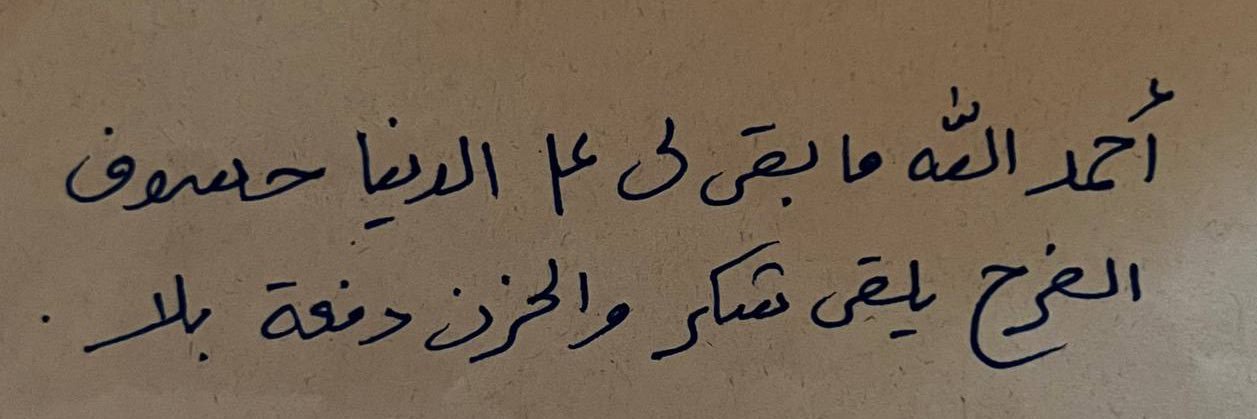 أحمد الله ما بقى لى علا الدنيا حسوف
الفرح يلقى شكر والحزن دفعة بلا .